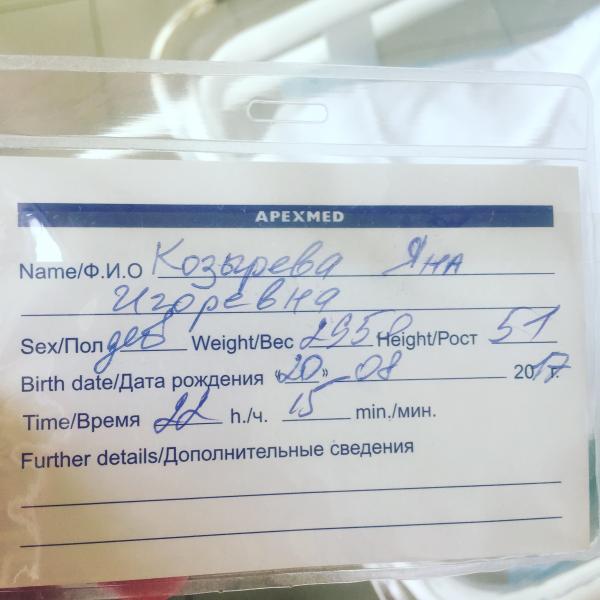 APEXMED
Name/Ф.И.О Козырева Яна
Игоревна
Sex/Пол дев Weight/Вес 2950 Height/Рост 51
Birth date/Дата рождения «20» 08 2017г.
Time/Время 22 h./ч. 15 min./мин.
Further details/Дополнительные сведения